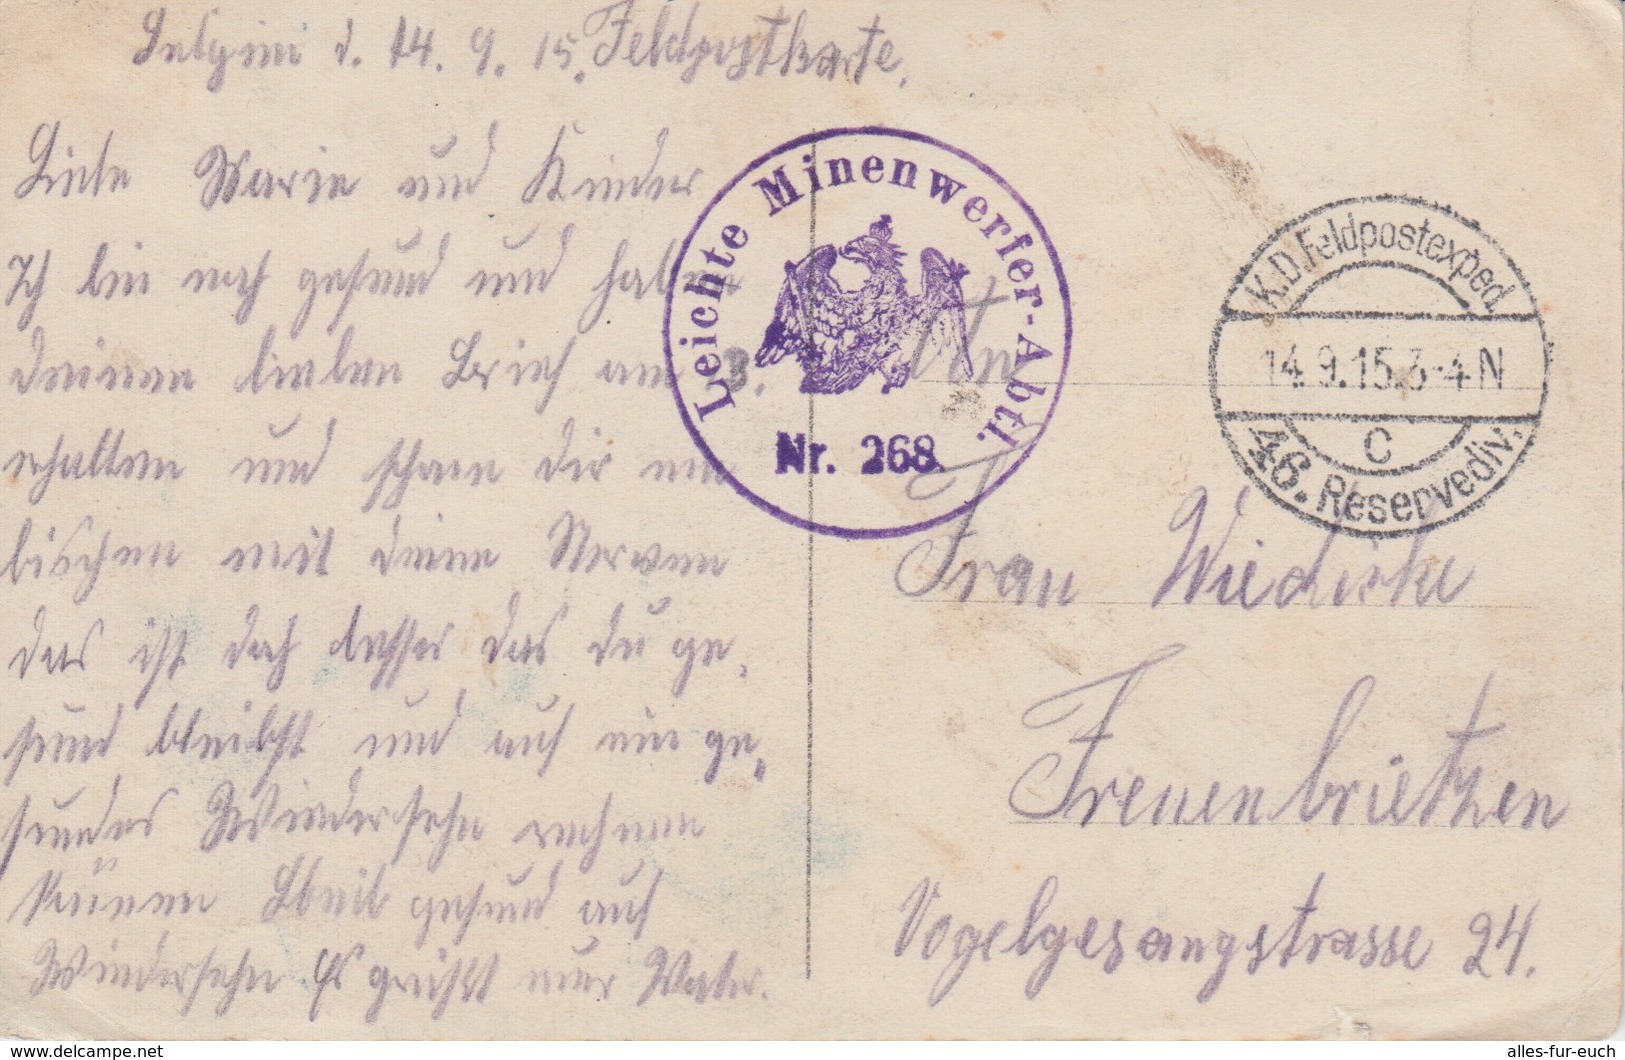 Belgien d. 14. 9. 15. Feldpostkarte.
Liebe Marie und Kinder
Ich bin noch gesund und habe
deinen lieben Brief am 3.
erhalten und schon dir ein
bischen mit deine Nerven
das ist doch besser das du ge-
sund bleibst und auf ein ge-
sundes Wiedersehn rechnen
können Bleib gesund auf
Wiedersehn Es grüßt euer Vater.
Leichte Minenwerfer-Abtl.
Nr. 268.
K.D. Feldpostexped.
14.9.15.3-4N
c
46. Reservediv.
An
Frau Wiedicke
Treuenbrietzen
Vogelgesangstrasse 24.
alles-fur-euch
www.delcampe.net